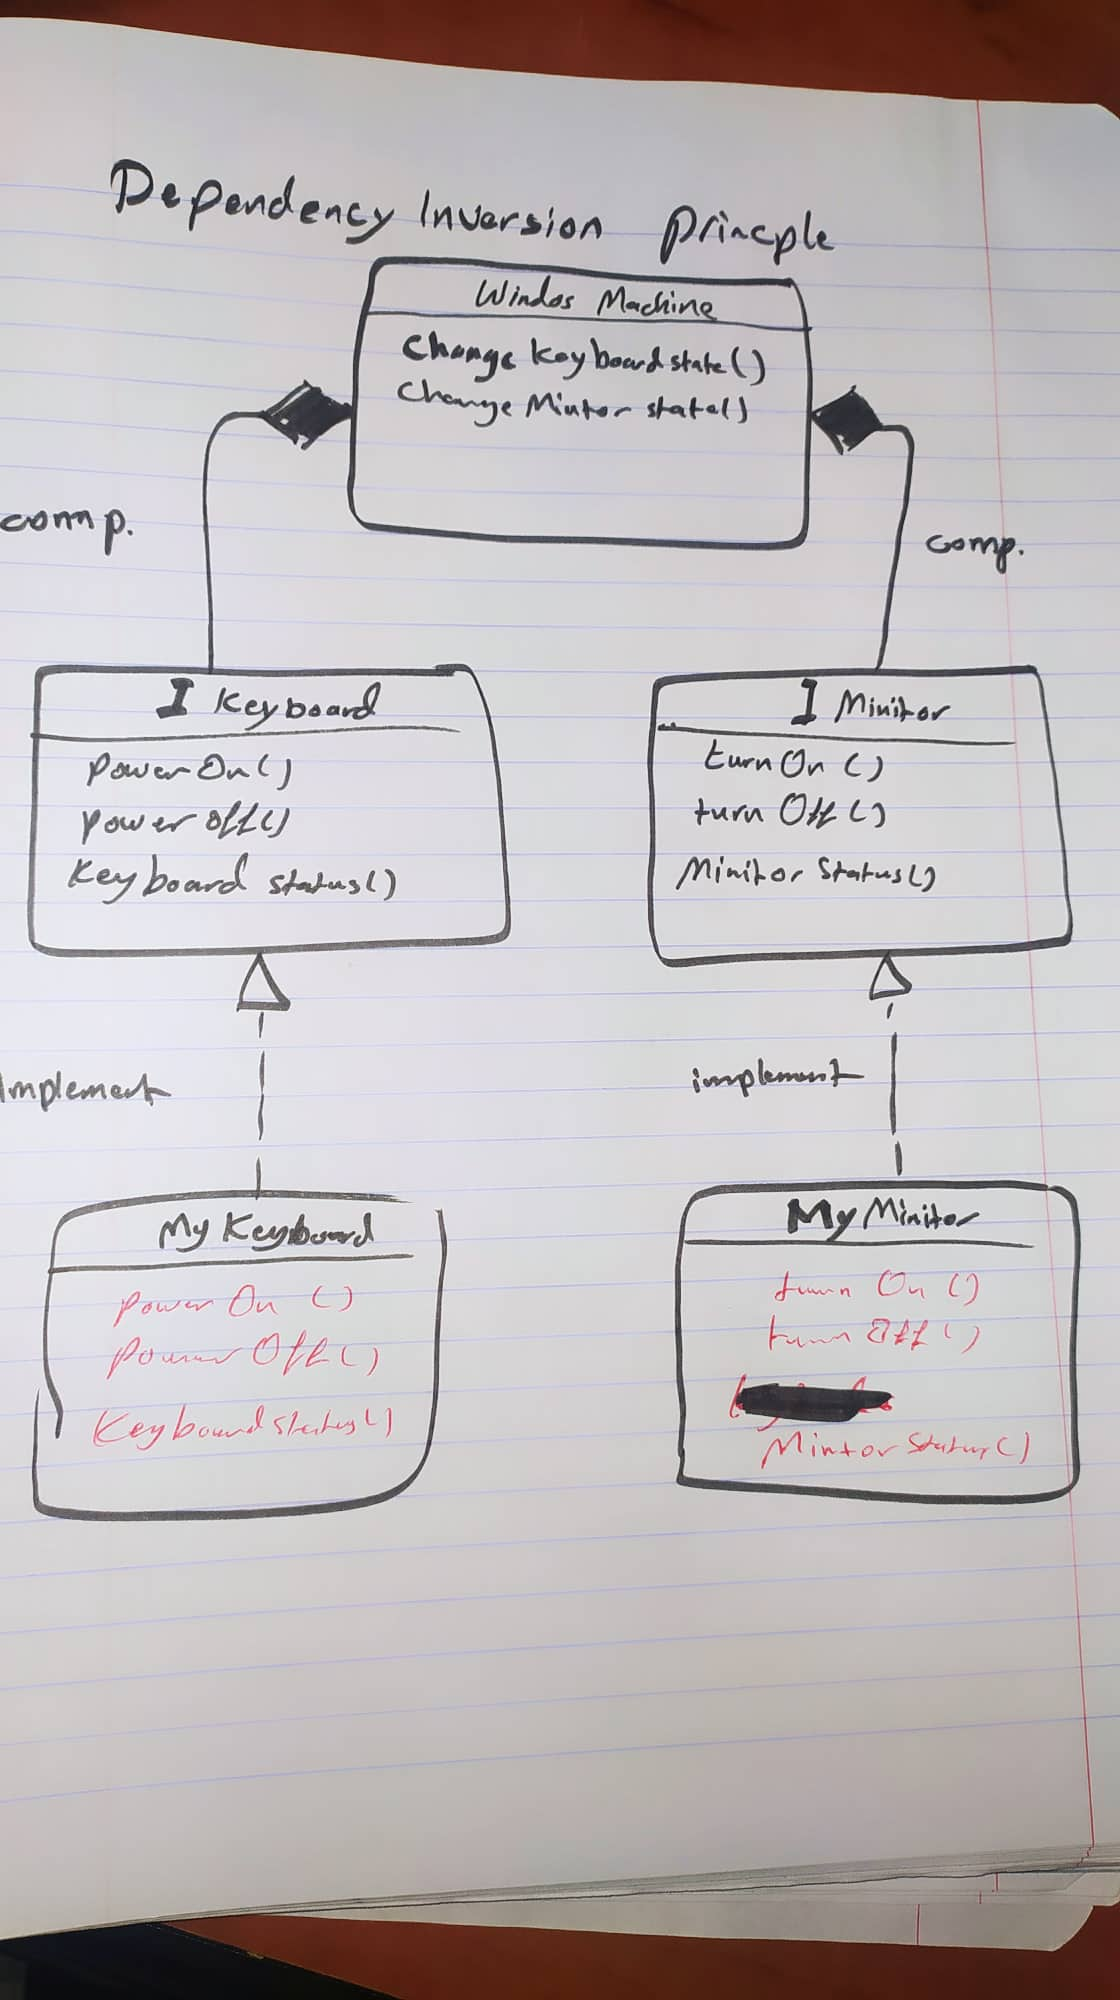 Dependency Inversion Princple
Windos Machine
Change Keyboard state()
Change Mintor state()
comp.
comp.
I Keyboard
power On()
power off()
Keyboard status()
I Minitor
turn On ()
turn Off ()
Minitor Status()
Implement
implement
My Keyboard
power On ()
Power Off()
Keyboard status()
My Minitor
turn On ()
turn Off ()
Mintor Status()